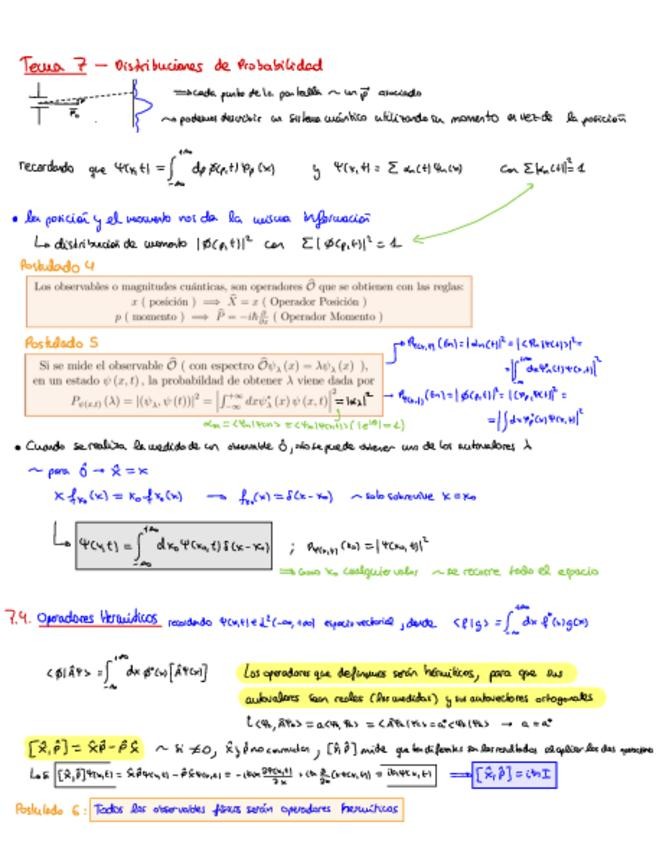 Tema 7 — Distribuciones de Probabilidad
⟹ cada punto de la pantalla ~ un p⃗ asociado
P⃗₀
~ podemos describir un sistema cuántico utilizando su momento en vez de la posición
recordando que Ψ(x,t) = ∫_{-∞}^{+∞} dp φ(p,t) φ_p(x) y Ψ(x,t) = Σ αn(t) Ψn(x) con Σ|αn(t)|² = 1
• la posición y el momento nos da la misma información
↳ distribución de momento |φ(p,t)|² con Σ|φ(p,t)|² = 1
Postulado 4
Los observables o magnitudes cuánticas, son operadores Ô que se obtienen con las reglas:
x ( posición ) ⟹ X̂ = x ( Operador Posición )
p ( momento ) ⟹ P̂ = −iħ ∂/∂x ( Operador Momento )
Postulado 5
Si se mide el observable Ô ( con espectro Ôψλ(x) = λψλ(x) ),
en un estado ψ(x,t), la probabilidad de obtener λ viene dada por
P_ψ(x,t)(λ) = |(ψλ, ψ(t))|² = |∫_{-∞}^{+∞} dxψ*λ(x) ψ(x,t)|² = |αλ|²
• Cuando se realiza la medida de un observable Ô, solo se puede obtener uno de los autovalores λ
~ para Ô → x̂ = x
x f_{x₀}(x) = x₀ f_{x₀}(x) → f_{x₀}(x) = δ(x−x₀) ~ solo sobrevive x = x₀
↳ Ψ(x,t) = ∫_{-∞}^{+∞} dx₀ Ψ(x₀,t) δ(x−x₀) ; P_Ψ(x,t)(x₀) = |Ψ(x₀,t)|²
⟹ como x₀ cualquier valor ~ se recorre todo el espacio
7.4. Operadores Hermíticos recordando Ψ(x,t) ∈ L²(−∞,+∞) espacio vectorial, donde <f|g> = ∫_{-∞}^{+∞} dx f*(x)g(x)
<φ|ÂΨ> = ∫_{-∞}^{+∞} dx φ*(x)[ÂΨ(x)]
Los operadores que definimos serán hérmiticos, para que sus
autovalores sean reales (las medidas) y sus autovectores ortogonales
→ a = a*
[x̂,p̂] = x̂p̂ − p̂x̂ ~ Si ≠0, x̂ y p̂ no conmutan,
⟹ [x̂,p̂] = iħI
Postulado 6: Todos los observables físicos serán operadores hermíticos